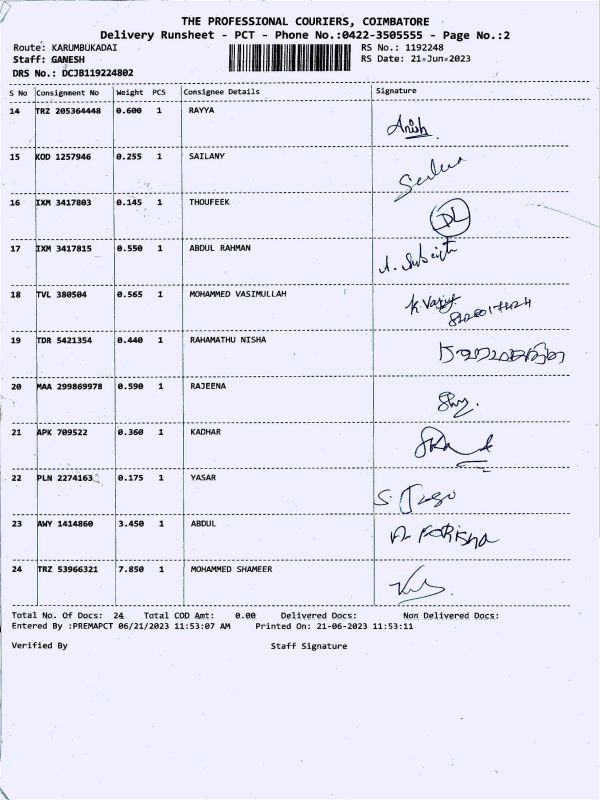 THE PROFESSIONAL COURIERS, COIMBATORE
Delivery Runsheet - PCT - Phone No.:0422-3505555 - Page No.:2
Route: KARUMBUKADAI RS No.: 1192248
Staff: GANESH RS Date: 21-Jun-2023
DRS No.: DCJB119224802
S No Consignment No Weight PCS Consignee Details Signature
14 TRZ 205364448 0.600 1 RAYYA
15 KOD 1257946 0.255 1 SAILANY
16 IXM 3417803 0.145 1 THOUFEEK
17 IXM 3417815 0.550 1 ABDUL RAHMAN
18 TVL 380504 0.565 1 MOHAMMED VASIMULLAH
19 TDR 5421354 0.440 1 RAHAMATHU NISHA
20 MAA 299869978 0.590 1 RAJEENA
21 APK 709522 0.360 1 KADHAR
22 PLN 2274163 0.175 1 YASAR
23 AWY 1414860 3.450 1 ABDUL
24 TRZ 53966321 7.850 1 MOHAMMED SHAMEER
Total No. Of Docs: 24 Total COD Amt: 0.00 Delivered Docs: Non Delivered Docs:
Entered By :PREMAPCT 06/21/2023 11:53:07 AM Printed On: 21-06-2023 11:53:11
Verified By Staff Signature